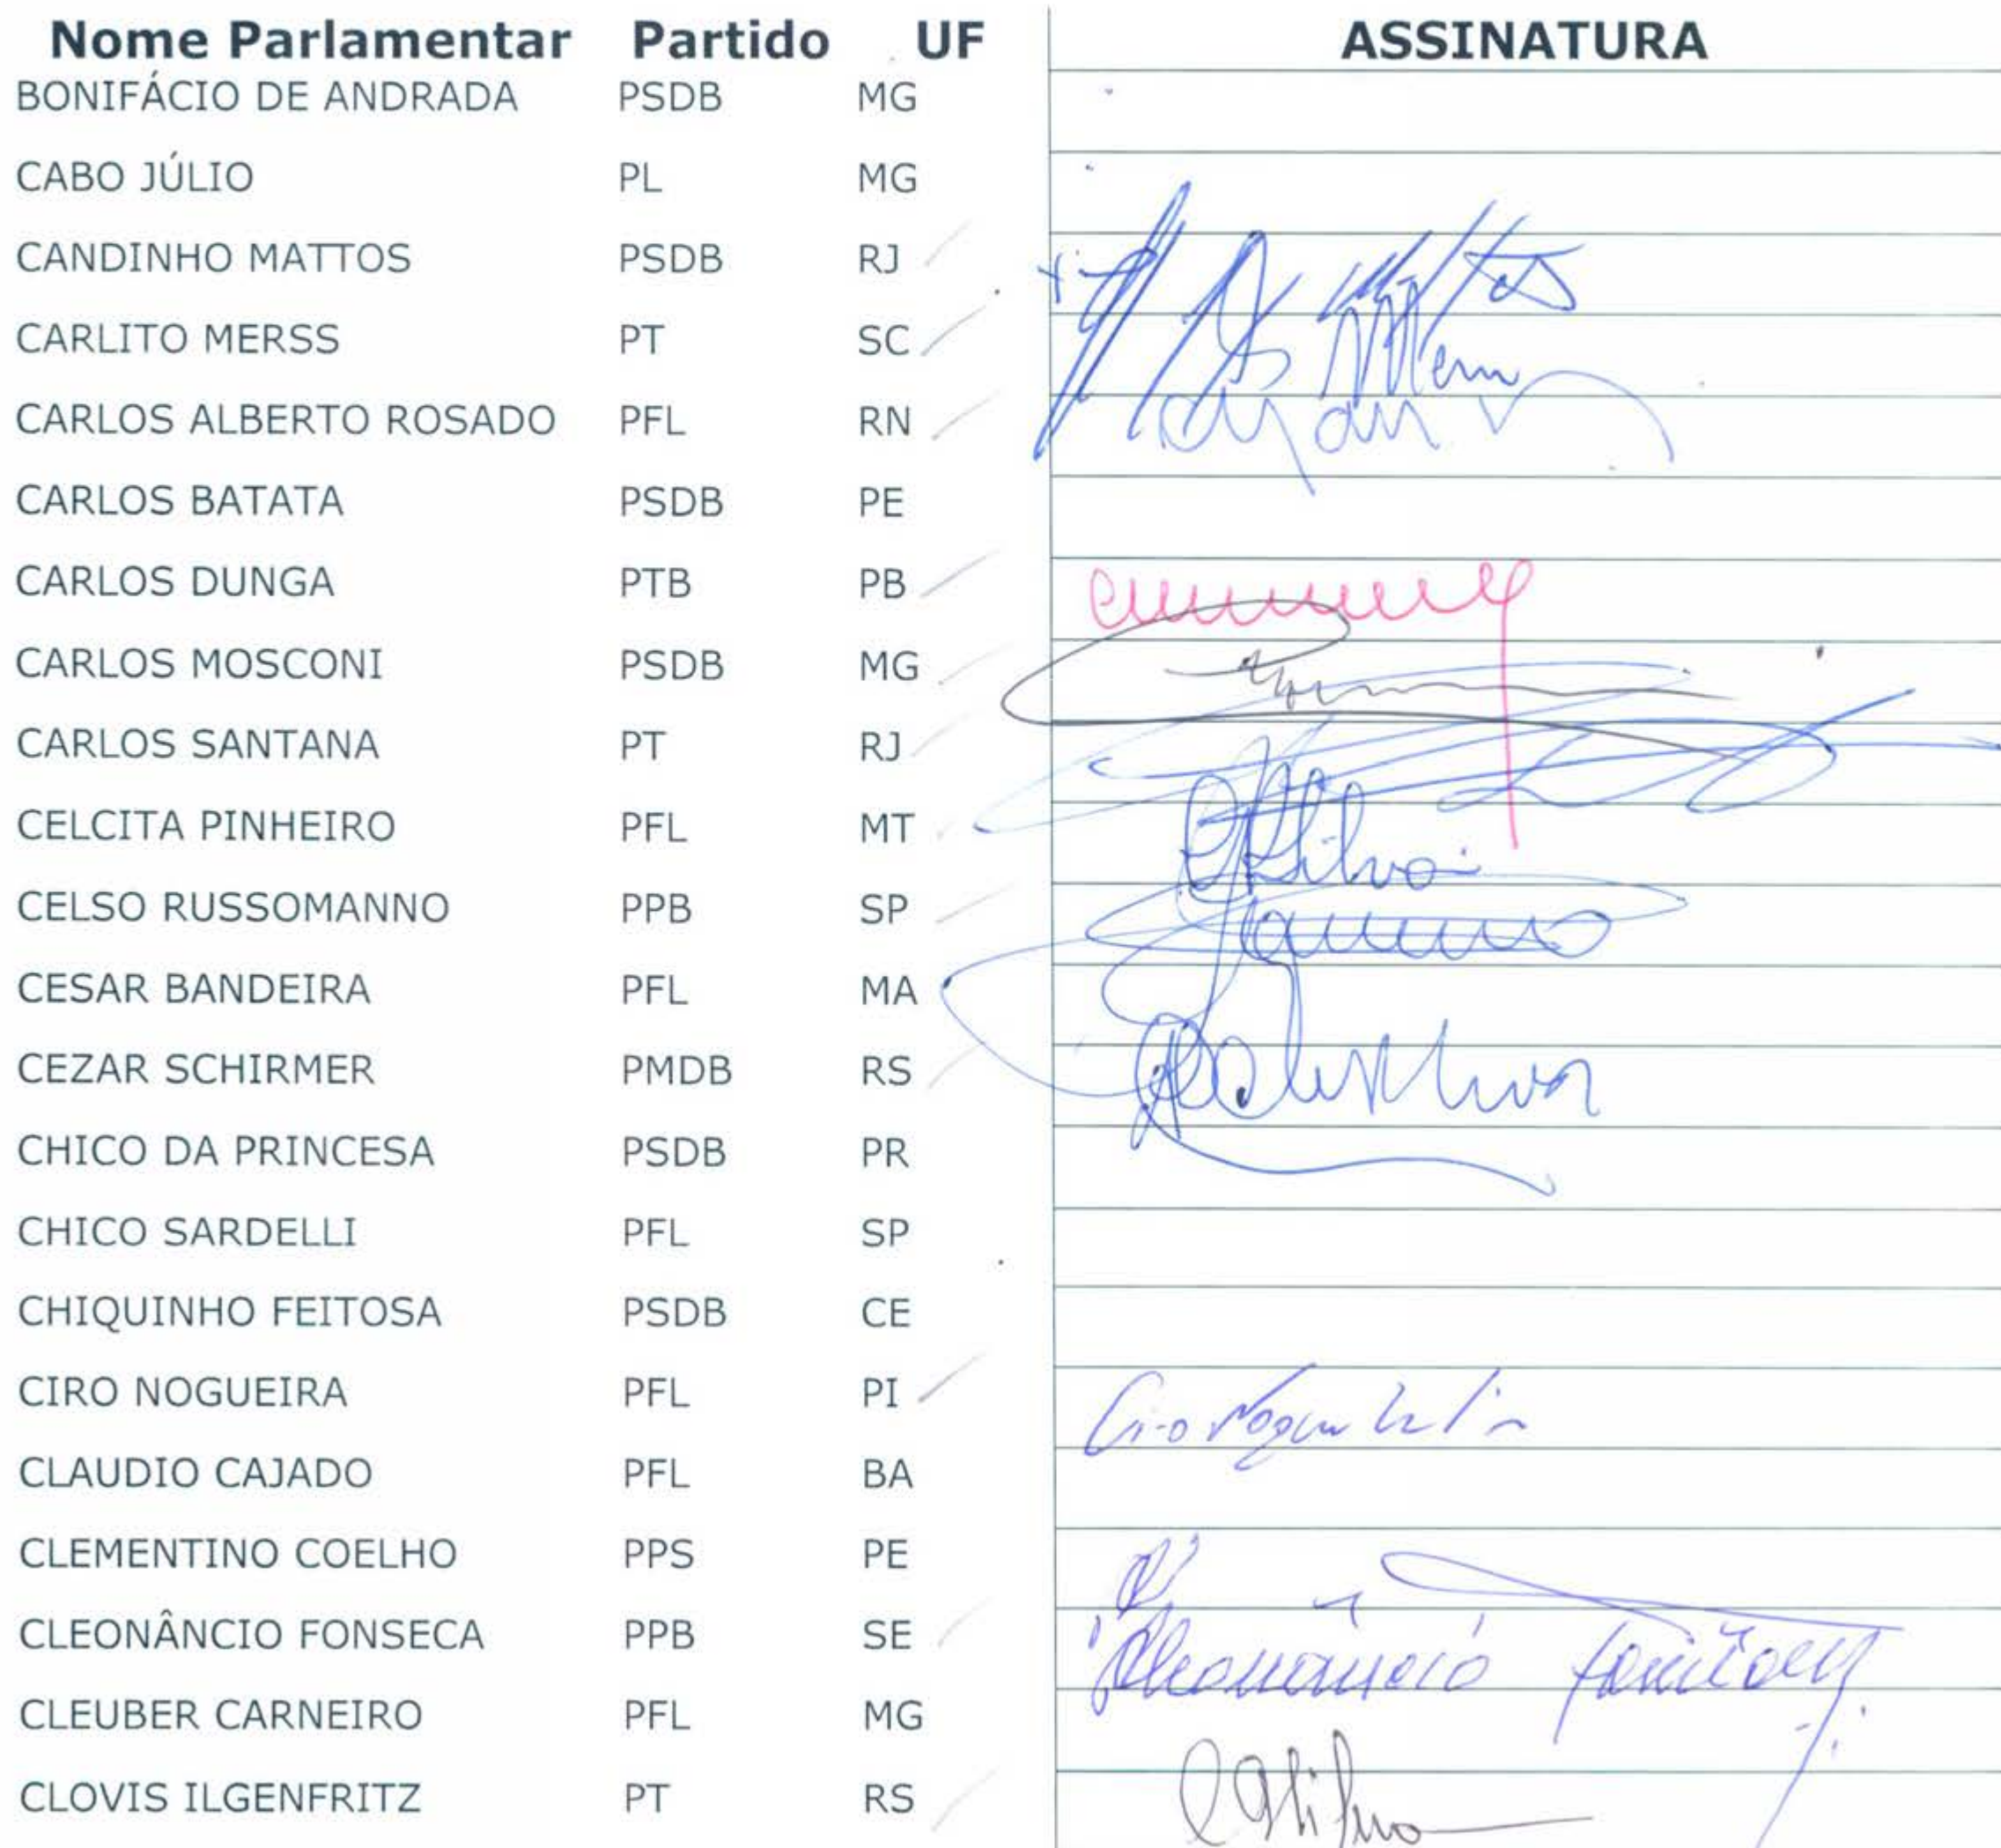 Nome Parlamentar Partido UF ASSINATURA
BONIFÁCIO DE ANDRADA PSDB MG
CABO JÚLIO PL MG
CANDINHO MATTOS PSDB RJ
CARLITO MERSS PT SC
CARLOS ALBERTO ROSADO PFL RN
CARLOS BATATA PSDB PE
CARLOS DUNGA PTB PB
CARLOS MOSCONI PSDB MG
CARLOS SANTANA PT RJ
CELCITA PINHEIRO PFL MT
CELSO RUSSOMANNO PPB SP
CESAR BANDEIRA PFL MA
CEZAR SCHIRMER PMDB RS
CHICO DA PRINCESA PSDB PR
CHICO SARDELLI PFL SP
CHIQUINHO FEITOSA PSDB CE
CIRO NOGUEIRA PFL PI Ciro
CLAUDIO CAJADO PFL BA
CLEMENTINO COELHO PPS PE
CLEONÂNCIO FONSECA PPB SE Cleonâncio
CLEUBER CARNEIRO PFL MG
CLOVIS ILGENFRITZ PT RS